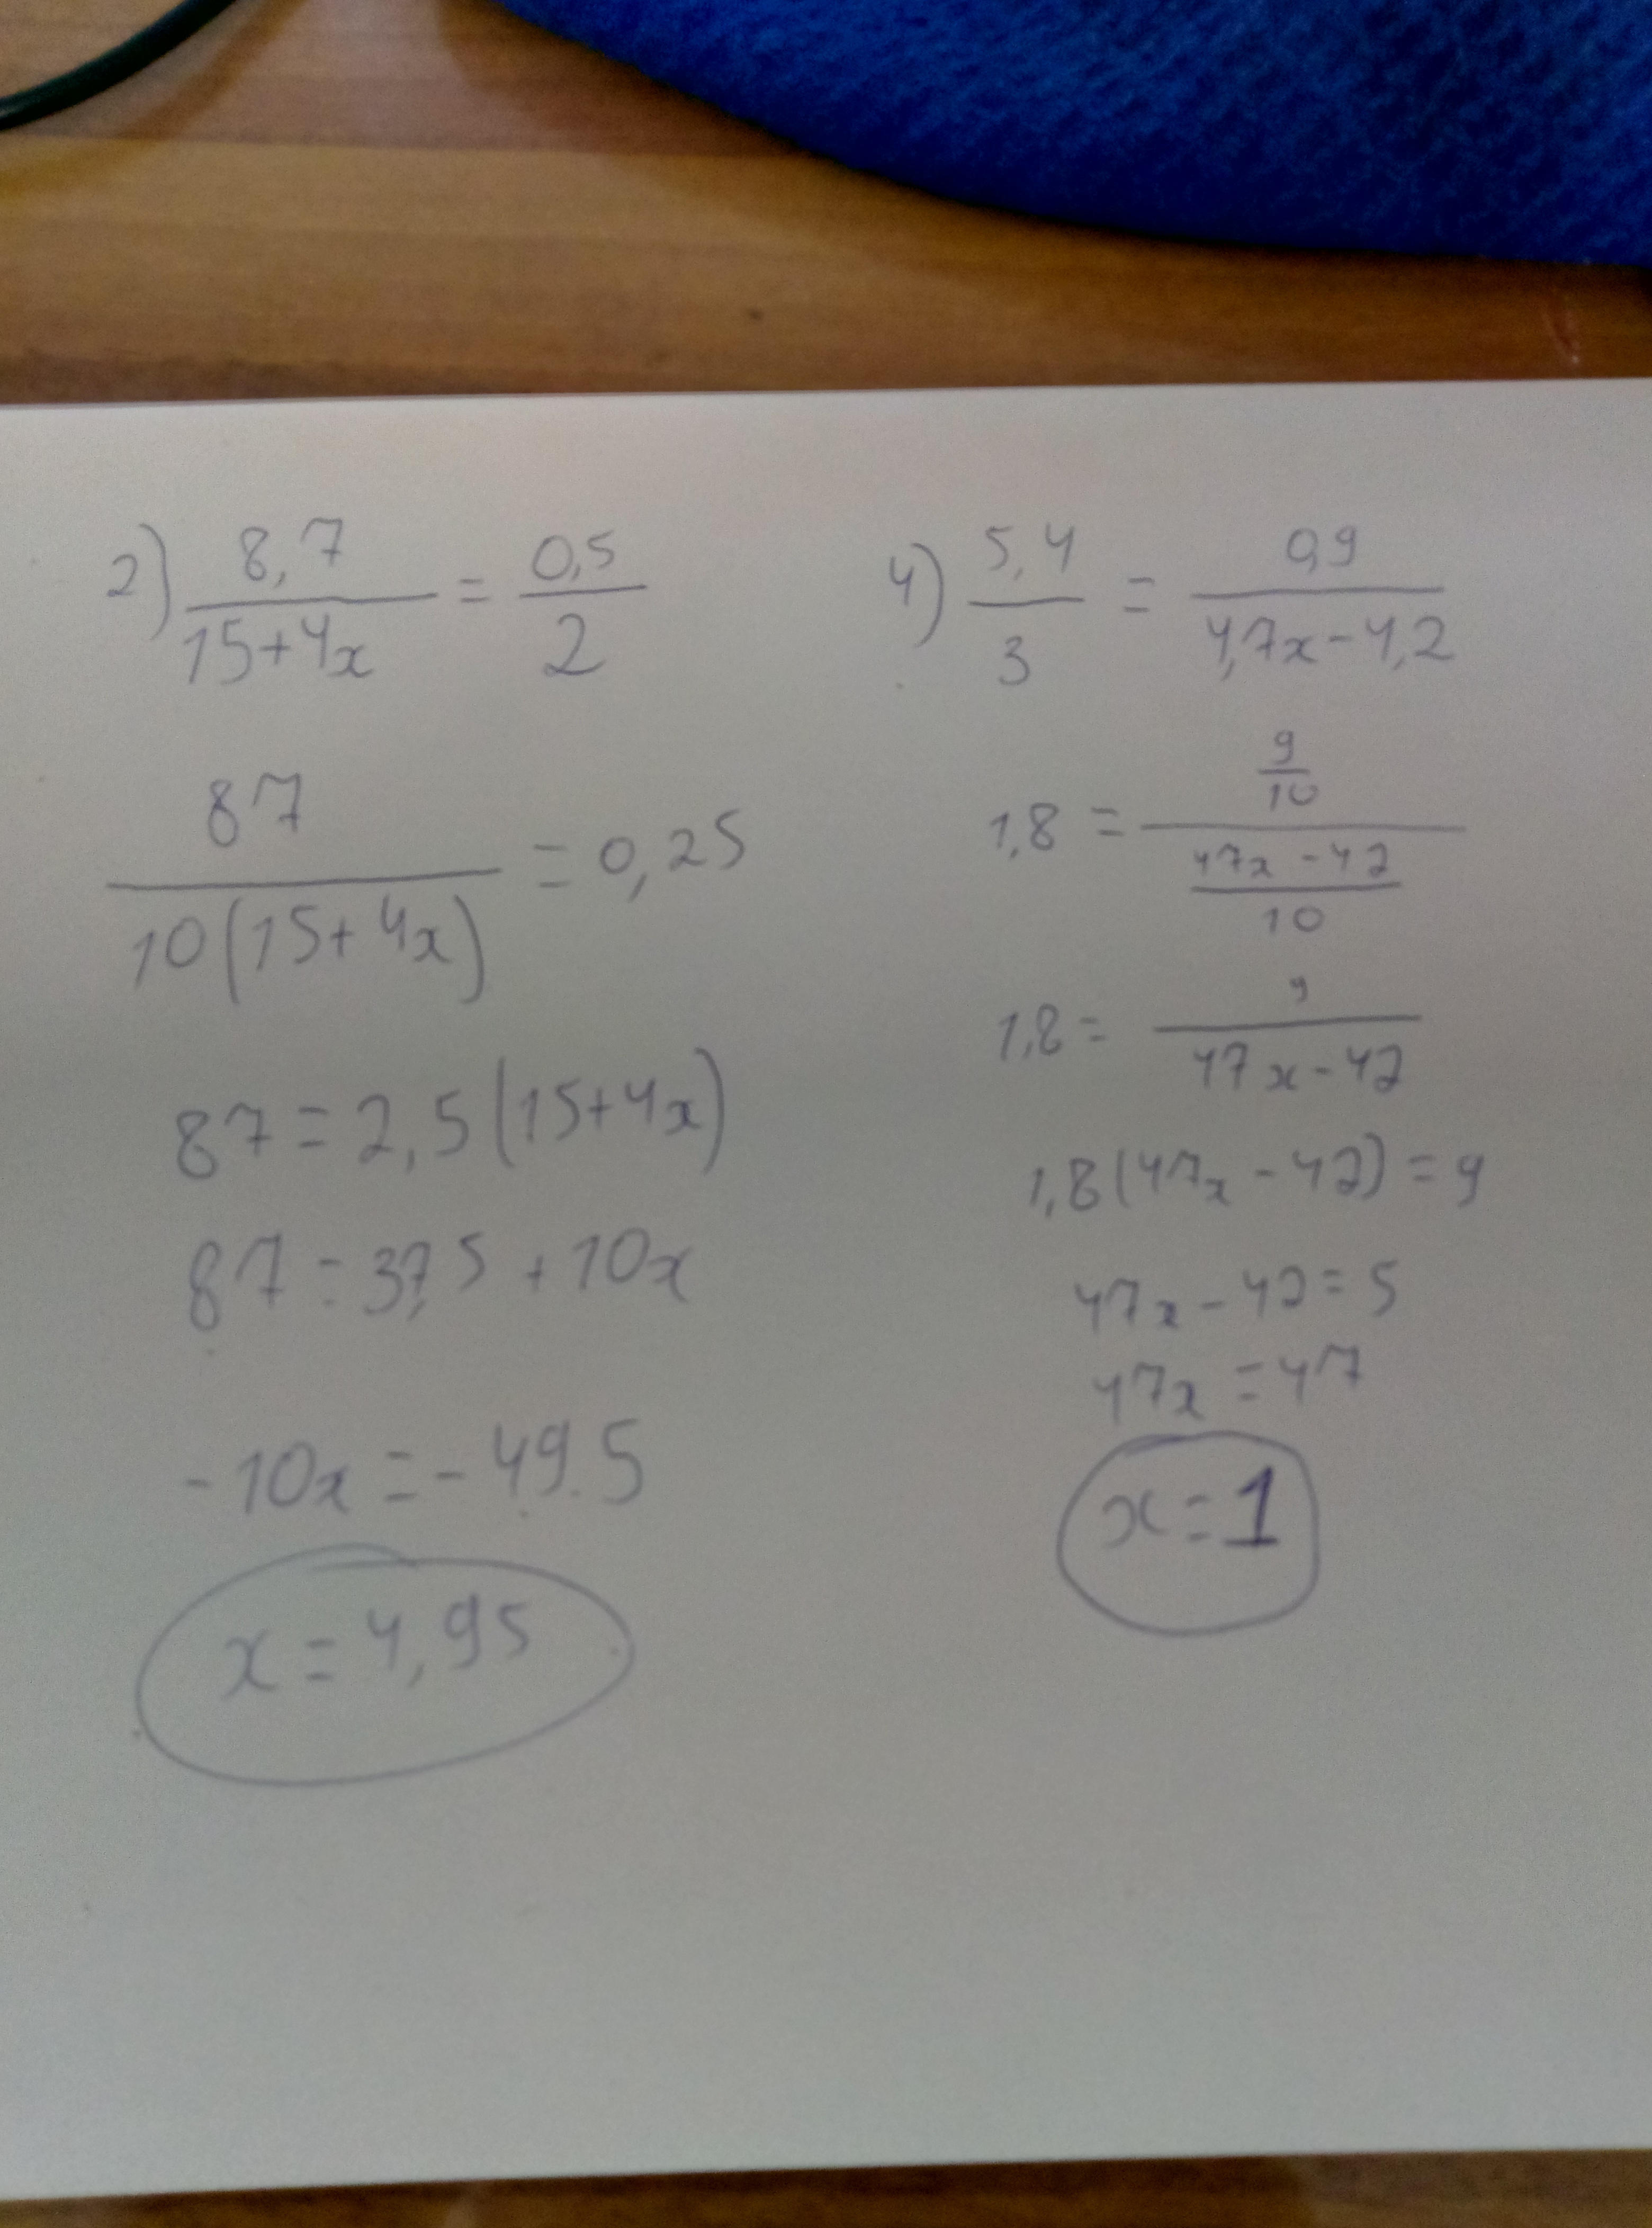 2) 8,7 / 15+4x = 0,5 / 2
87 / 10(15+4x) = 0,25
87 = 2,5(15+4x)
87 = 37,5 + 10x
-10x = -49.5
x = 4,95
4) 5,4 / 3 = 0,9 / 4,7x-4,2
1,8 = 9/10 / 47x-42/10
1,8 = 9 / 47x-42
1,8(47x-42) = 9
47x-42 = 5
47x = 47
x = 1